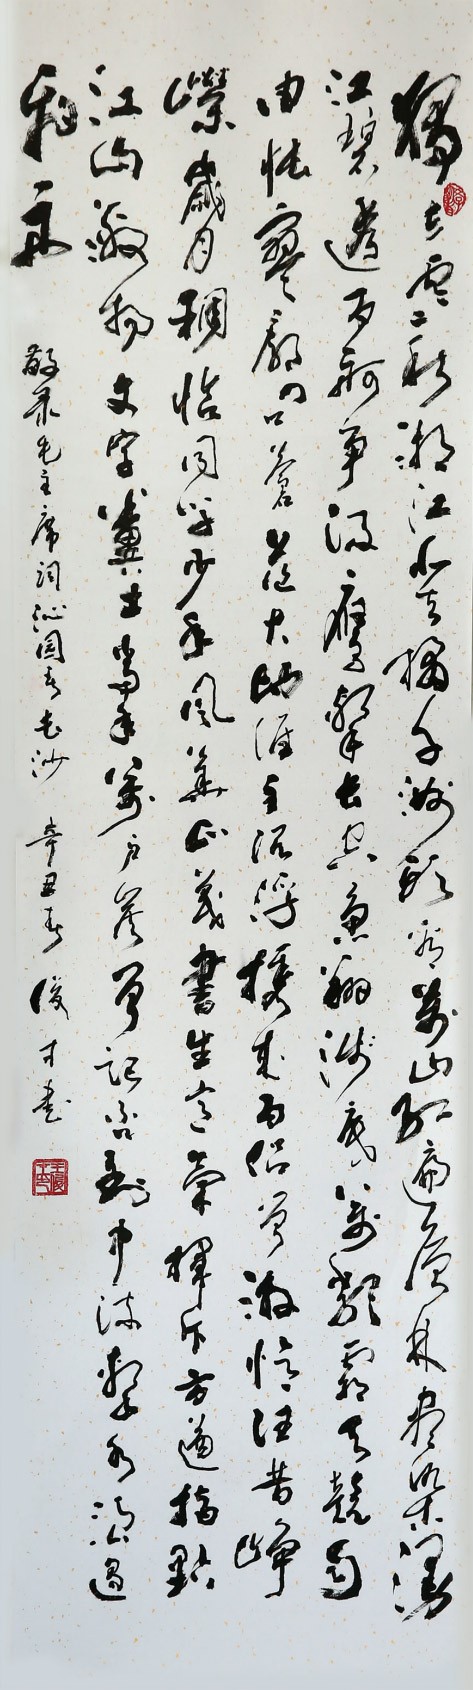 獨立寒秋湘江北去橘子洲頭看萬山紅遍層林盡染漫
江碧透百舸爭流鷹擊長空魚翔淺底萬類霜天競自
由悵寥廓問蒼茫大地誰主沉浮攜來百侶曾游憶往昔崢
嶸歲月稠恰同學少年風華正茂書生意氣揮斥方遒指點
江山激揚文字糞土當年萬户侯曾記否到中流擊水浪遏
飛舟
敬录毛主席词沁园春长沙 辛丑春 俊才书